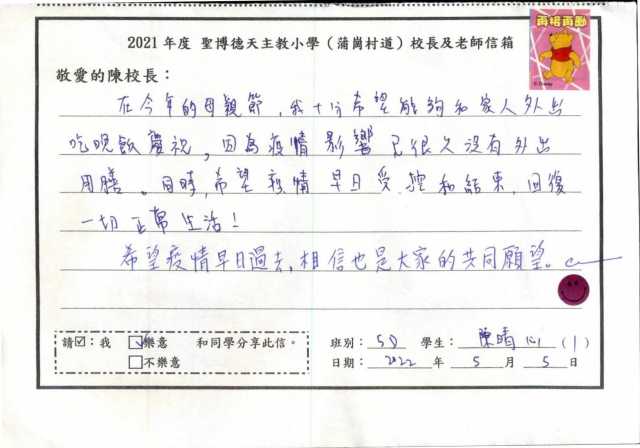 2021 年度 聖博德天主教小學（蒲崗村道）校長及老師信箱
再接再勵
© Disney
敬愛的陳校長：
在今年的母親節，我十分希望能夠和家人外出
吃晚飯慶祝，因為疫情影響已很久沒有外出
用膳。同時，希望疫情早日受控和結束，回復
一切正常生活！
希望疫情早日過去，相信也是大家的共同願望。
請☑：我 ☑樂意 和同學分享此信。
□不樂意
班別：5D 學生：陳晴心（1）
日期：2022 年 5 月 5 日